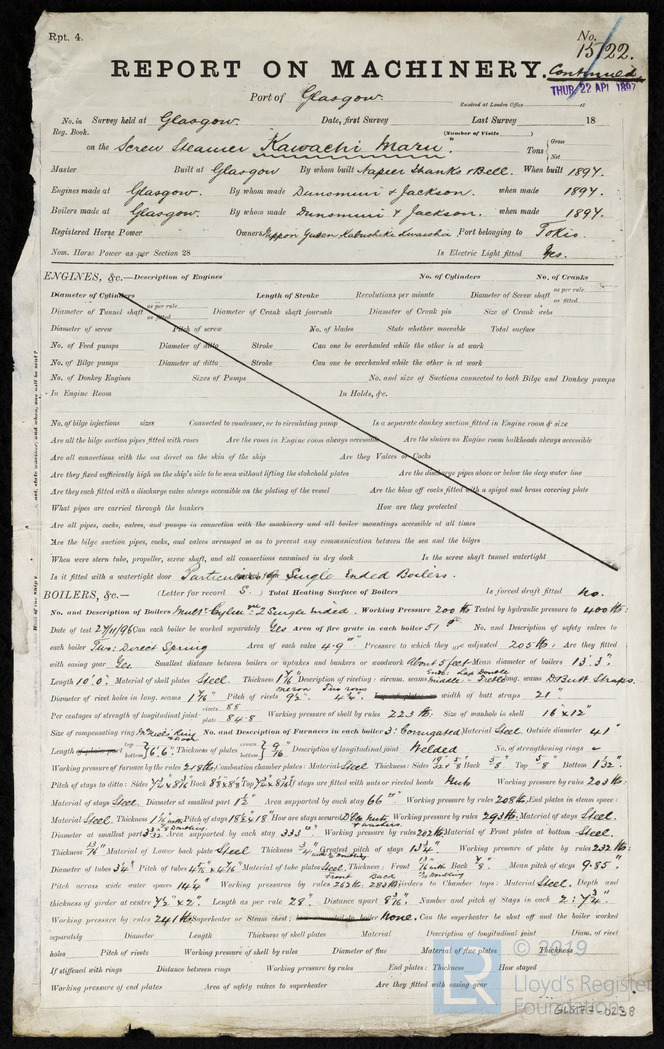 Rpt. 4.
No. 15122.
REPORT ON MACHINERY. Continued
THUR. 22 APL 1897
Port of Glasgow.
Received at London Office 18
No. in Survey held at Glasgow. Date, first Survey Last Survey 18
Reg. Book. (Number of Visits )
on the Screw Steamer Kawachi Maru. Tons { Gross Net
Master Built at Glasgow By whom built Napier Shanks & Bell. When built 1897.
Engines made at Glasgow. By whom made Dunsmuir & Jackson. when made 1897.
Boilers made at Glasgow. By whom made Dunsmuir & Jackson. when made 1897.
Registered Horse Power Owners Nippon Yusen Kabushiki Kwaisha Port belonging to Tokio.
Nom. Horse Power as per Section 28 Is Electric Light fitted Yes.
ENGINES, &c.—Description of Engines No. of Cylinders No. of Cranks
Diameter of Cylinders Length of Stroke Revolutions per minute Diameter of Screw shaft as per rule as fitted
Diameter of Tunnel shaft as per rule as fitted Diameter of Crank shaft journals Diameter of Crank pin Size of Crank webs
Diameter of screw Pitch of screw No. of blades State whether moveable Total surface
No. of Feed pumps Diameter of ditto Stroke Can one be overhauled while the other is at work
No. of Bilge pumps Diameter of ditto Stroke Can one be overhauled while the other is at work
No. of Donkey Engines Sizes of Pumps No. and size of Suctions connected to both Bilge and Donkey pumps
In Engine Room In Holds, &c.
No. of bilge injections sizes Connected to condenser, or to circulating pump Is a separate donkey suction fitted in Engine room & size
Are all the bilge suction pipes fitted with roses Are the roses in Engine room always accessible Are the sluices on Engine room bulkheads always accessible
Are all connections with the sea direct on the skin of the ship Are they Valves or Cocks
Are they fixed sufficiently high on the ship's side to be seen without lifting the stokehold plates Are the discharge pipes above or below the deep water line
Are they each fitted with a discharge valve always accessible on the plating of the vessel Are the blow off cocks fitted with a spigot and brass covering plate
What pipes are carried through the bunkers How are they protected
Are all pipes, cocks, valves, and pumps in connection with the machinery and all boiler mountings accessible at all times
Are the bilge suction pipes, cocks, and valves arranged so as to prevent any communication between the sea and the bilges
When were stern tube, propeller, screw shaft, and all connections examined in dry dock Is the screw shaft tunnel watertight
Is it fitted with a watertight door Particulars of Single Ended Boilers.
BOILERS, &c.— (Letter for record S.) Total Heating Surface of Boilers Is forced draft fitted no.
No. and Description of Boilers 2 Single Ended. Working Pressure 200 lbs Tested by hydraulic pressure to 400 lbs:
Date of test 27/11/96 Can each boiler be worked separately Yes Area of fire grate in each boiler 51 No. and Description of safety valves to
each boiler Two: Direct Spring Area of each valve 4.9" Pressure to which they are adjusted 205 lbs. Are they fitted
with easing gear Yes. Smallest distance between boilers or uptakes and bunkers or woodwork about 5 feet Mean diameter of boilers 13'.3".
Length 10'.0". Material of shell plates Steel Thickness 1 7/16" Description of riveting: circum. seams long. seams D Butt Straps.
Diameter of rivet holes in long. seams 1 7/16" Pitch of rivets width of butt straps 21"
Per centages of strength of longitudinal joint rivets 88 plate 84.8 Working pressure of shell by rules 223 lbs. Size of manhole in shell 16"x12"
Size of compensating ring No. and Description of Furnaces in each boiler 3: Corrugated Material Steel. Outside diameter 41"
Length of plain part top bottom 6'.6". Thickness of plates crown bottom 9/16" Description of longitudinal joint Welded No. of strengthening rings
Working pressure of furnace by the rules 218 lbs. Combustion chamber plates: Material Steel Thickness: Sides Back 5/8" Top 5/8" Bottom 1 1/32".
Pitch of stays to ditto: Sides Back Top If stays are fitted with nuts or riveted heads Nuts Working pressure by rules 203 lbs:
Material of stays Steel. Diameter at smallest part 1 1/2" Area supported by each stay 66" Working pressure by rules 208 lbs. End plates in steam space:
Material Steel. Thickness Pitch of stays 18 1/2 x 18" How are stays secured Working pressure by rules 293 lbs. Material of stays Steel.
Diameter at smallest part Area supported by each stay 333" Working pressure by rules 202 lbs Material of Front plates at bottom Steel.
Thickness 13/16" Material of Lower back plate Steel Thickness Greatest pitch of stays 13 1/4" Working pressure of plate by rules 232 lbs:
Diameter of tubes 3 1/4" Pitch of tubes Material of tube plates Steel. Thickness: Front Back 7/8" Mean pitch of stays 9.85".
Pitch across wide water spaces 14 1/4" Working pressures by rules Girders to Chamber tops: Material Steel. Depth and
thickness of girder at centre 7 1/2" x 2" Length as per rule 28" Distance apart Number and pitch of Stays in each 2: 7 3/4"
Working pressure by rules 241 lbs. Superheater or Steam chest; how connected to boiler None. Can the superheater be shut off and the boiler worked
separately Diameter Length Thickness of shell plates Material Description of longitudinal joint Diam. of rivet
holes Pitch of rivets Working pressure of shell by rules Diameter of flue Material of flue plates Thickness
If stiffened with rings Distance between rings Working pressure by rules End plates: Thickness How stayed
Working pressure of end plates Area of safety valves to superheater Are they fitted with easing gear
© 2019
LR Lloyd's Register
Foundation
GLS177-0238